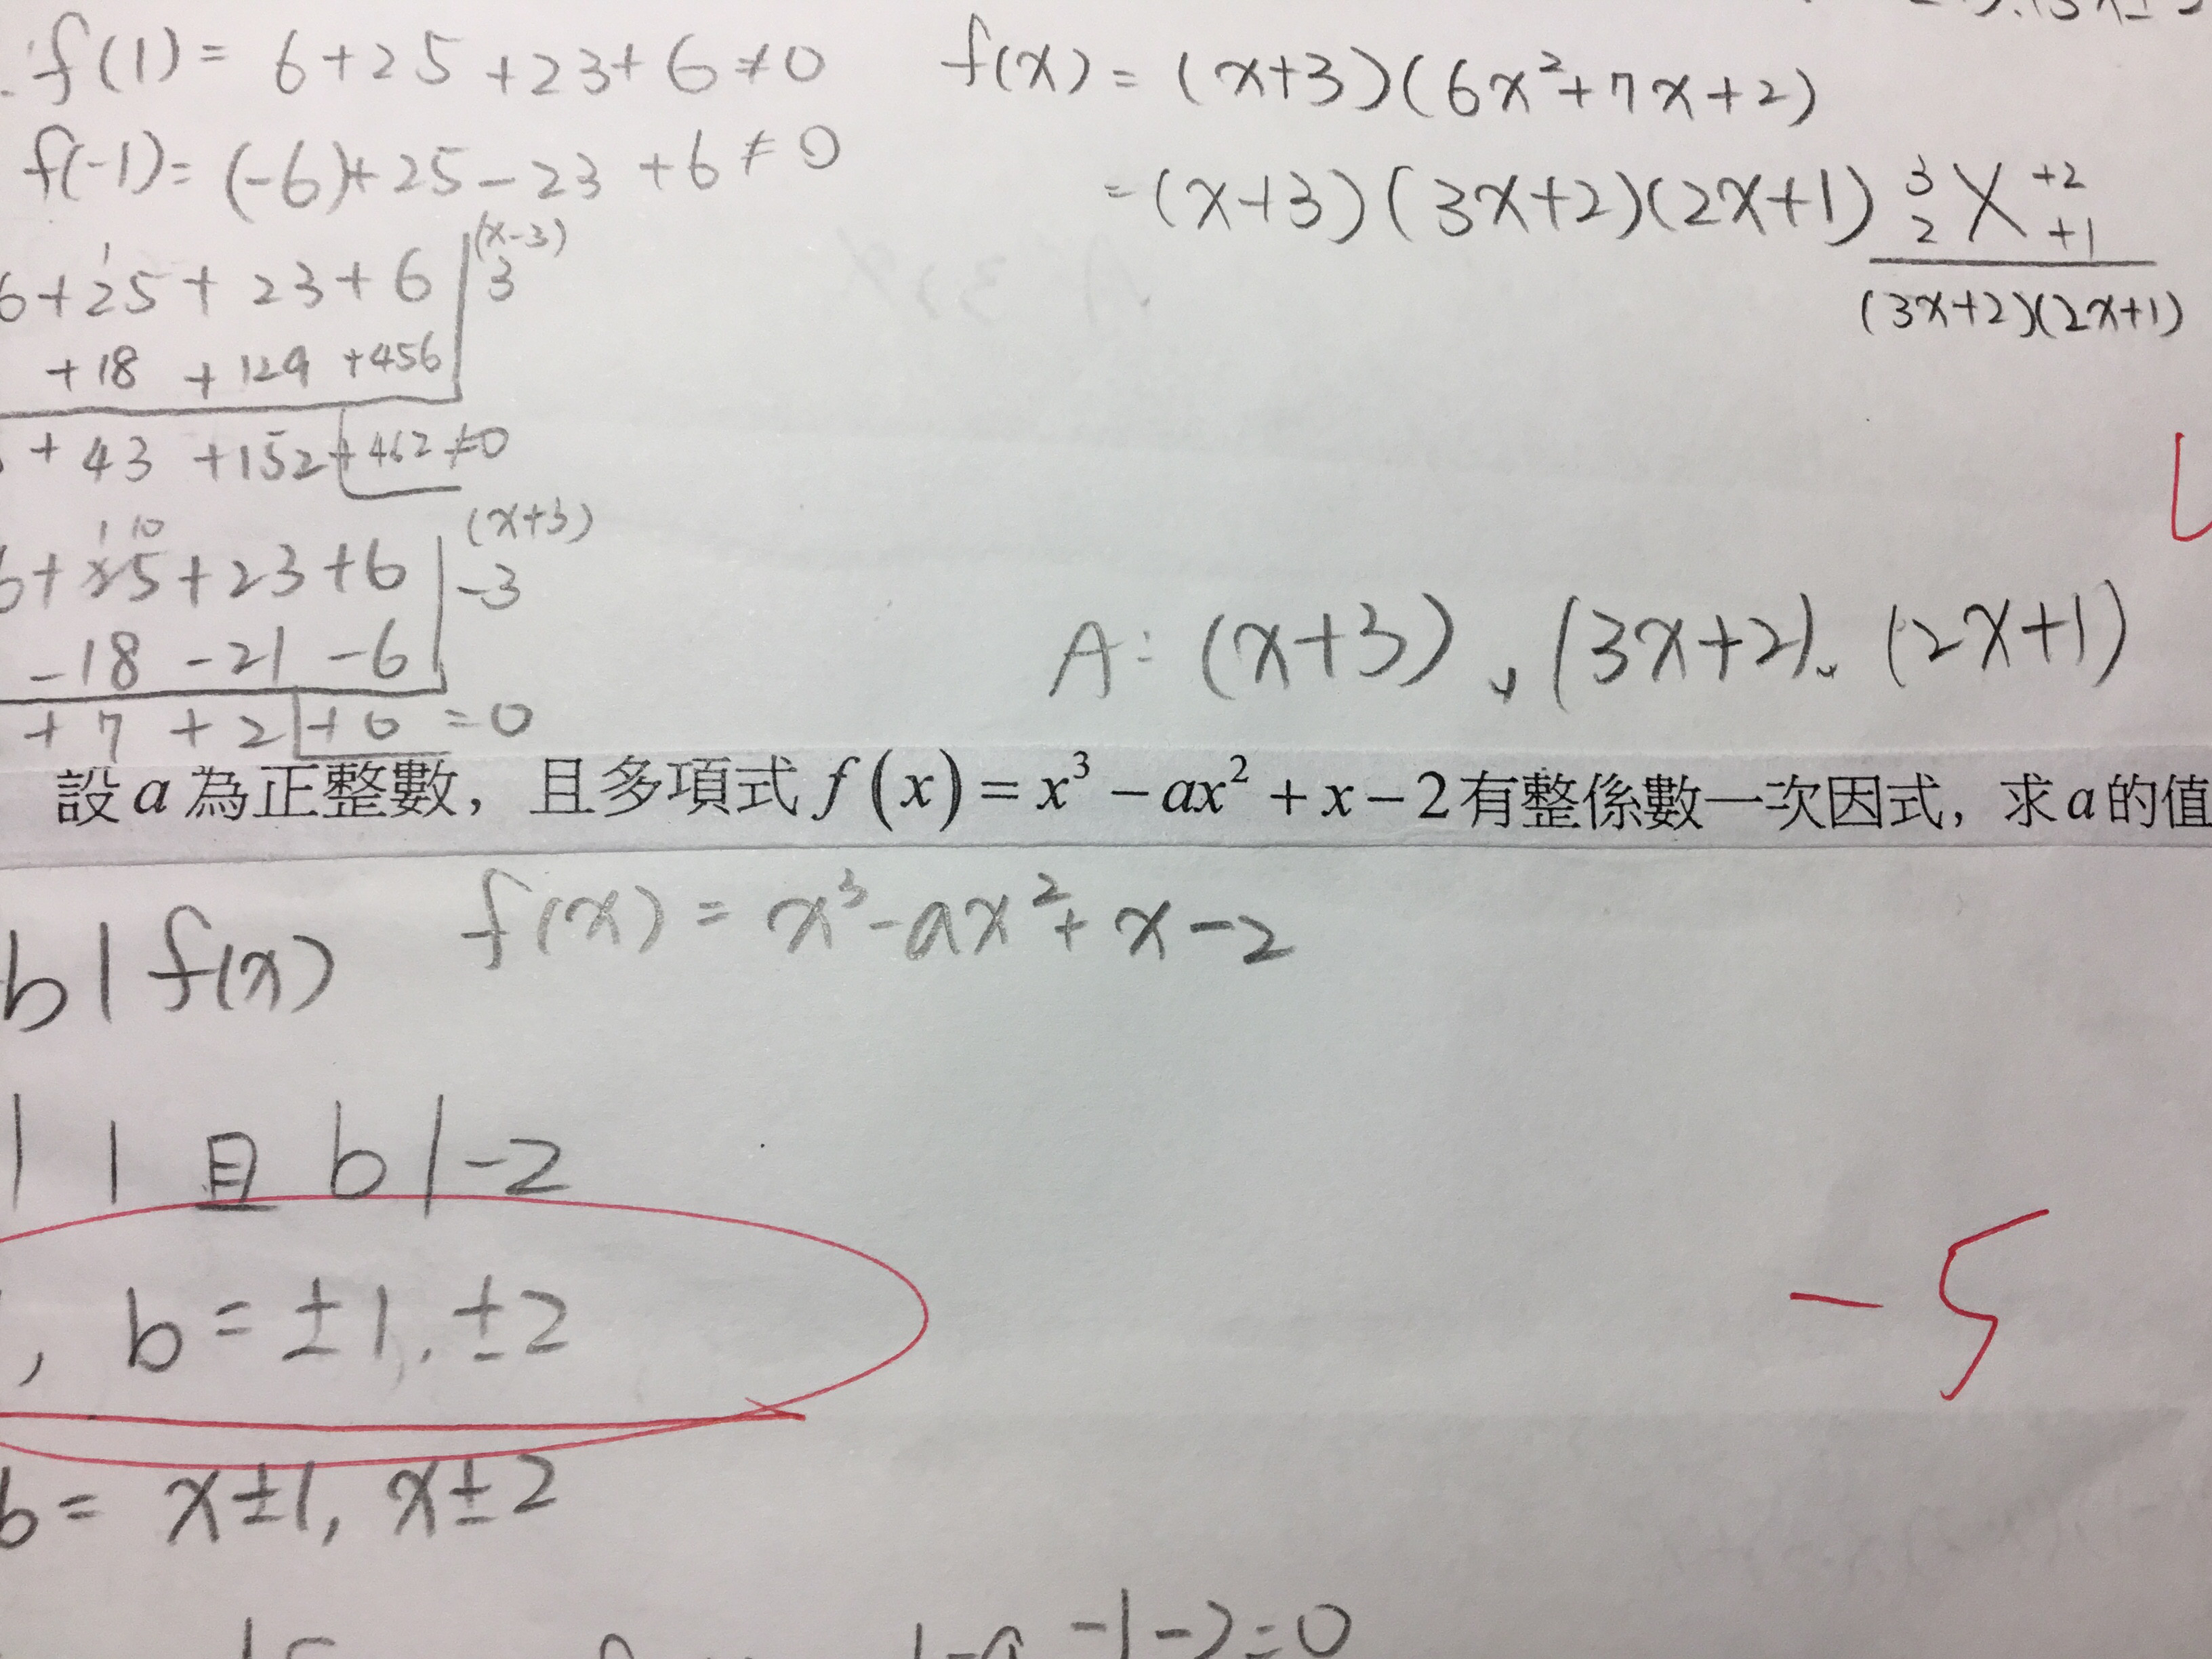 f(1)= 6+25+23+6≠0
f(-1)= (-6)+25-23+6≠0
6+25+23+6 (x-3)
3
+18 +129 +456
+43 +152 +462≠0
6+25+23+6 (x+3)
-3
-18 -21 -6
+7 +2 +0 =0
f(x)= (x+3)(6x²+7x+2)
=(x+3)(3x+2)(2x+1)
3 X +2
2 +1
(3x+2)(2x+1)
A: (x+3)、(3x+2)、(2x+1)
設a為正整數，且多項式 f(x)=x³-ax²+x-2有整係數一次因式，求a的值
b|f(x) f(x)=x³-ax²+x-2
|1 且 b|-2
, b=±1,±2
-5
b= x±1, x±2
-1-2=0